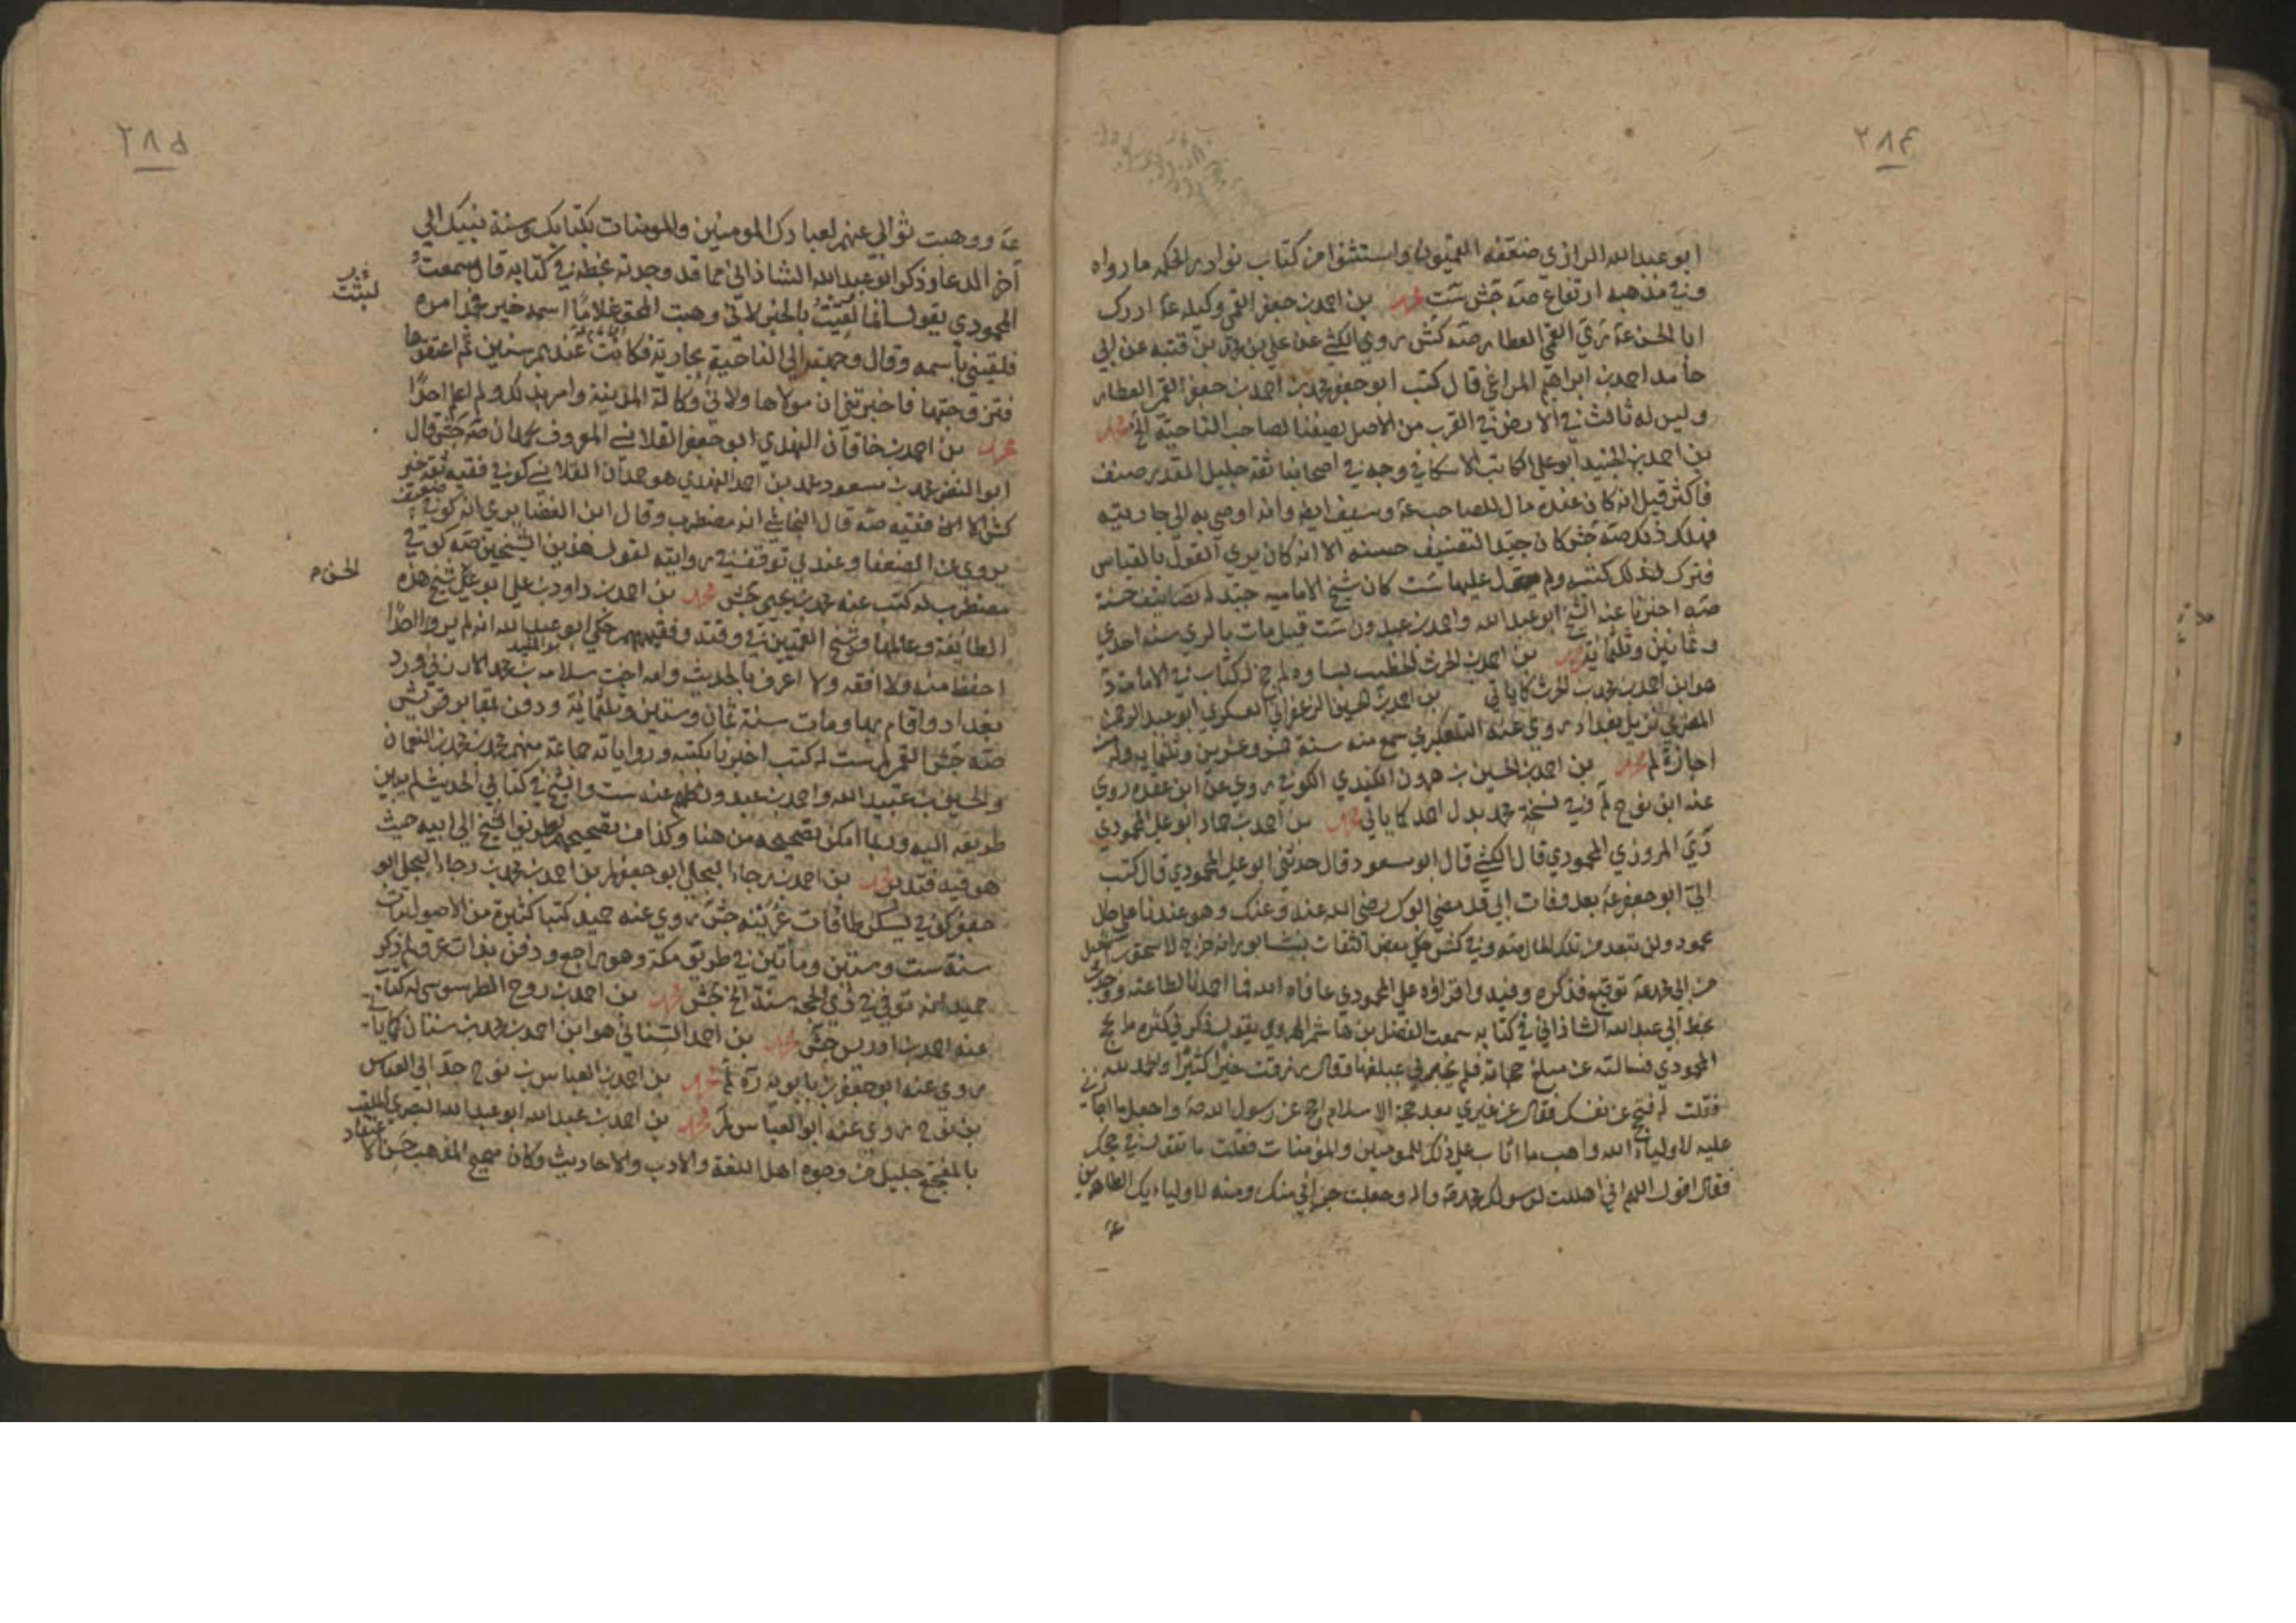 ٢٨٤
ابو عبد الله الرازي ضعفه القميون واستثنوا من كتاب نوادر الحكمه ما رواه
وفي مذهبه ارتفاع صه جش ست محمد بن احمد بن جعفر القمي وكيله عه ادرك
ابا الحسن عه كري القمي العطار صه كش روي الكشي عن علي بن محمد بن قتيبه عن ابي
حامد احمد بن ابراهيم المراغي قال كتب ابو جعفر محمد بن احمد بن جعفر القمي العطار
وليس له ثالث في الارض في القرب من الاصل يصفنا لصاحب الناحية الخ محمد
بن احمد بن الجنيد ابو علي الكاتب الاسكافي وجه في اصحابنا ثقة جليل القدر صنف
فاكثر قيل انه كان عنده مال للصاحب عه وسيف ايضه وانه اوصي به الي جاريته
فهلك ذلك صه جش كان جيد التصنيف حسنه الا انه كان يري القول بالقياس
فترك لذلك كتبه ولم يعول عليها ست كان شيخ الاماميه جيد له تصانيف حسنة
صه اخبرنا عنه الشيخ ابو عبد الله واحمد بن عبدون ست قيل مات بالري سنة احدي
وثمانين وثلثماية محمد بن احمد بن الحرث الخطيب بساوه لم جخ له كتاب في الامامة
هو ابن احمد بن محمد بن الحرث كما ياتي بن احمد بن الحسين الزعفراني العسكري ابو عبد الرحمن
المصري نزيل بغداد روي عنه التلعكبري سمع منه سنة خمس وعشرين وثلثمايه وله منه
اجازة لم محمد بن احمد بن الحسين بن هرون الكندي الكوفي روي عن ابن عقده روي
عنه ابن نوح لم وفي نسخة محمد بدل احمد كما ياتي محمد بن احمد بن حماد ابو علي المحمودي
المروزي المحمودي قال الكشي قال ابو مسعود قال حدثني ابو علي المحمودي قال كتب
الي ابو جعفر عه بعد وفات ابي قد مضي ابوك رضي الله عنه وعنك وهو عندنا علي حال
محمود ولن تبعد من تلك الحال صه وفي كش حكي بعض الثقات بنيشابور انه خرج لاسحق بن اسمعيل
من ابي محمد عه توقيع فذكره وفيه واقراؤه علي المحمودي عافاه الله فما احمدنا لطاعته ووجدت
بخط ابي عبد الله الشاذاني في كتابه سمعت الفضل بن هاشم الهروي يقول ذكر لي كثره ما يحج
المحمودي فسالته عن مبلغ حجاته فلم يخبرني بمبلغها فقال رزقت خيرا كثيرا والحمد لله
فقلت له فتحج عن نفسك فقال عن غيري بعد حجة الاسلام احج عن رسول الله صه واجعل ما اجازني
عليه لاولياء الله واهب ما اثاب علي ذلك للمومنين والمؤمنات فقلت ما تقول في حجك
فقال اقول اللهم اني اهللت لرسولك محمد صه واله وجعلت جزائي منك ومنه لاوليائك الطاهرين
عه
٢٨٥
عه ووهبت ثوابي عنهم لعبادك المومنين والمومنات بكتابك وسنة نبيك الي
اخر الدعا وذكر ابو عبد الله الشاذاني مما قد وجدته بخطه في كتابه قال سمعت
المحمودي يقول انما لقيت بالخير لاني وهبت المحق غلاما اسمه خير فحمد امره
لقبت
فلقبني باسمه وقال وجهت الي الناحية بجارية فكانت عندهم سنين ثم اعتقوها
فتزوجتها فاخبرتني ان مولاها ولاني وكالة المدينة وامر بذلك ولم اعلم احدا
محمد بن احمد بن خاقان النهدي ابو جعفر القلانسي المعروف بحمدان صه جش قال
ابو النضر محمد بن مسعود محمد بن احمد النهدي هو حمدان القلانسي كوفي فقيه ثقة خير
كش الا ان فقيه صه قال النجاشي انه مضطرب وقال ابن الغضايري انه كوفي ضعيف
يروي عن الضعفا وعندي توقف في روايته لقول هذين الشيخين صه كوفي
مضطرب له كتب عنه محمد بن يحيي جش محمد بن احمد بن داود بن علي ابو الحسن شيخ هذه
الحسن م
الطايفة وعالمها وشيخ القميين في وقته وفقيههم حكي ابو عبد الله انه لم ير احدا
احفظ منه ولا افقه ولا اعرف بالحديث وامه اخت سلامه بن محمد الارزني ورد
بغداد واقام بها ومات سنة ثمان وستين وثلثماية ودفن بمقابر قريش
صه جش القمي لم ست له كتب اخبرنا بكتبه ورواياته جماعة منهم محمد بن محمد بن النعمان
والحسين بن عبيد الله واحمد بن عبدون كلهم عنه ست والشيخ في كتابي الحديث لم يبين
طريقه اليه وربما امكن تصحيحه من هنا وكذا تصحيحه بطريق الشيخ الي ابيه حيث
هو فيه فتدبر محمد بن احمد بن رجاء البجلي ابو جعفر لم بن احمد بن محمد بن رجاء البجلي ابو
جعفر كوفي يسكن طاقات عرينه جش روي عنه حميد كتبا كثيرة من الاصول مات
سنة ست وستين ومأتين في طريق مكة وهو راجع ودفن بذات عرق لم ذكر
حميد انه توفي في ذي الحجه سنة الخ جش محمد بن احمد بن روح الطرسوسي له كتاب
عنه احمد بن ادريس جش محمد بن احمد السناني هو ابن احمد بن محمد بن سنان كما ياتي
روي عنه ابو جعفر بن بابويه ره لم محمد بن احمد بن العباس بن نوح جد ابي العباس
بن نوح روي عنه ابو العباس لم محمد بن احمد بن عبد الله ابو عبد الله البصري الملقب
بالمفجع جليل من وجوه اهل اللغة والادب والاحاديث وكان صحيح المذهب حسن الاعتقاد